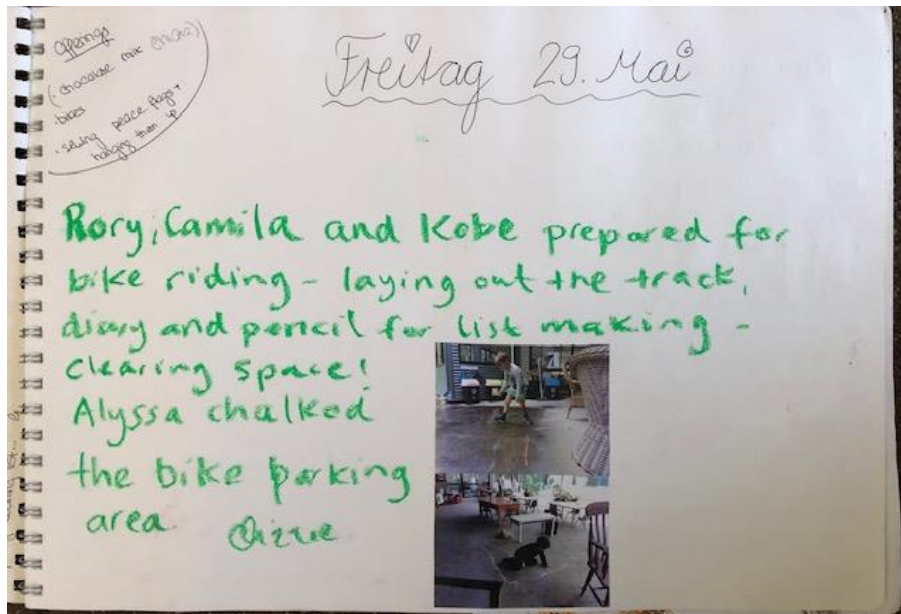 Offerings
(. chocolate mix
. bikes
. sewing peace flags +
hanging them up
Freitag 29. Mai
Rory, Camila and Kobe prepared for
bike riding - laying out the track,
diary and pencil for list making -
clearing space!
Alyssa chalked
the bike parking
area.